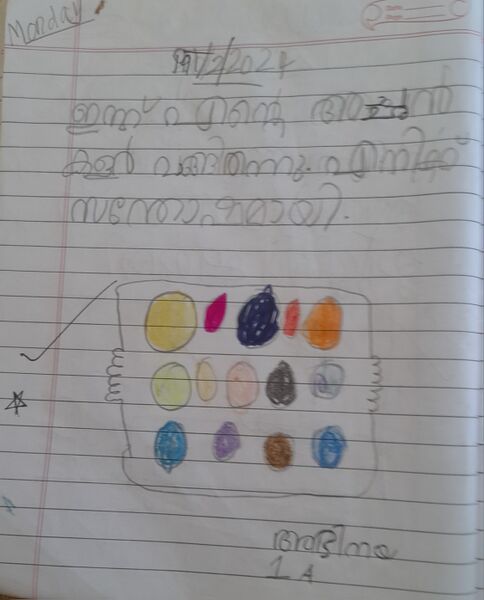 Monday
19/2/2024
ഇന്ന് എന്റെ അച്ഛൻ
കളർ വാങ്ങിതന്നു. എനിക്ക്
സന്തോഷമായി.
1 A